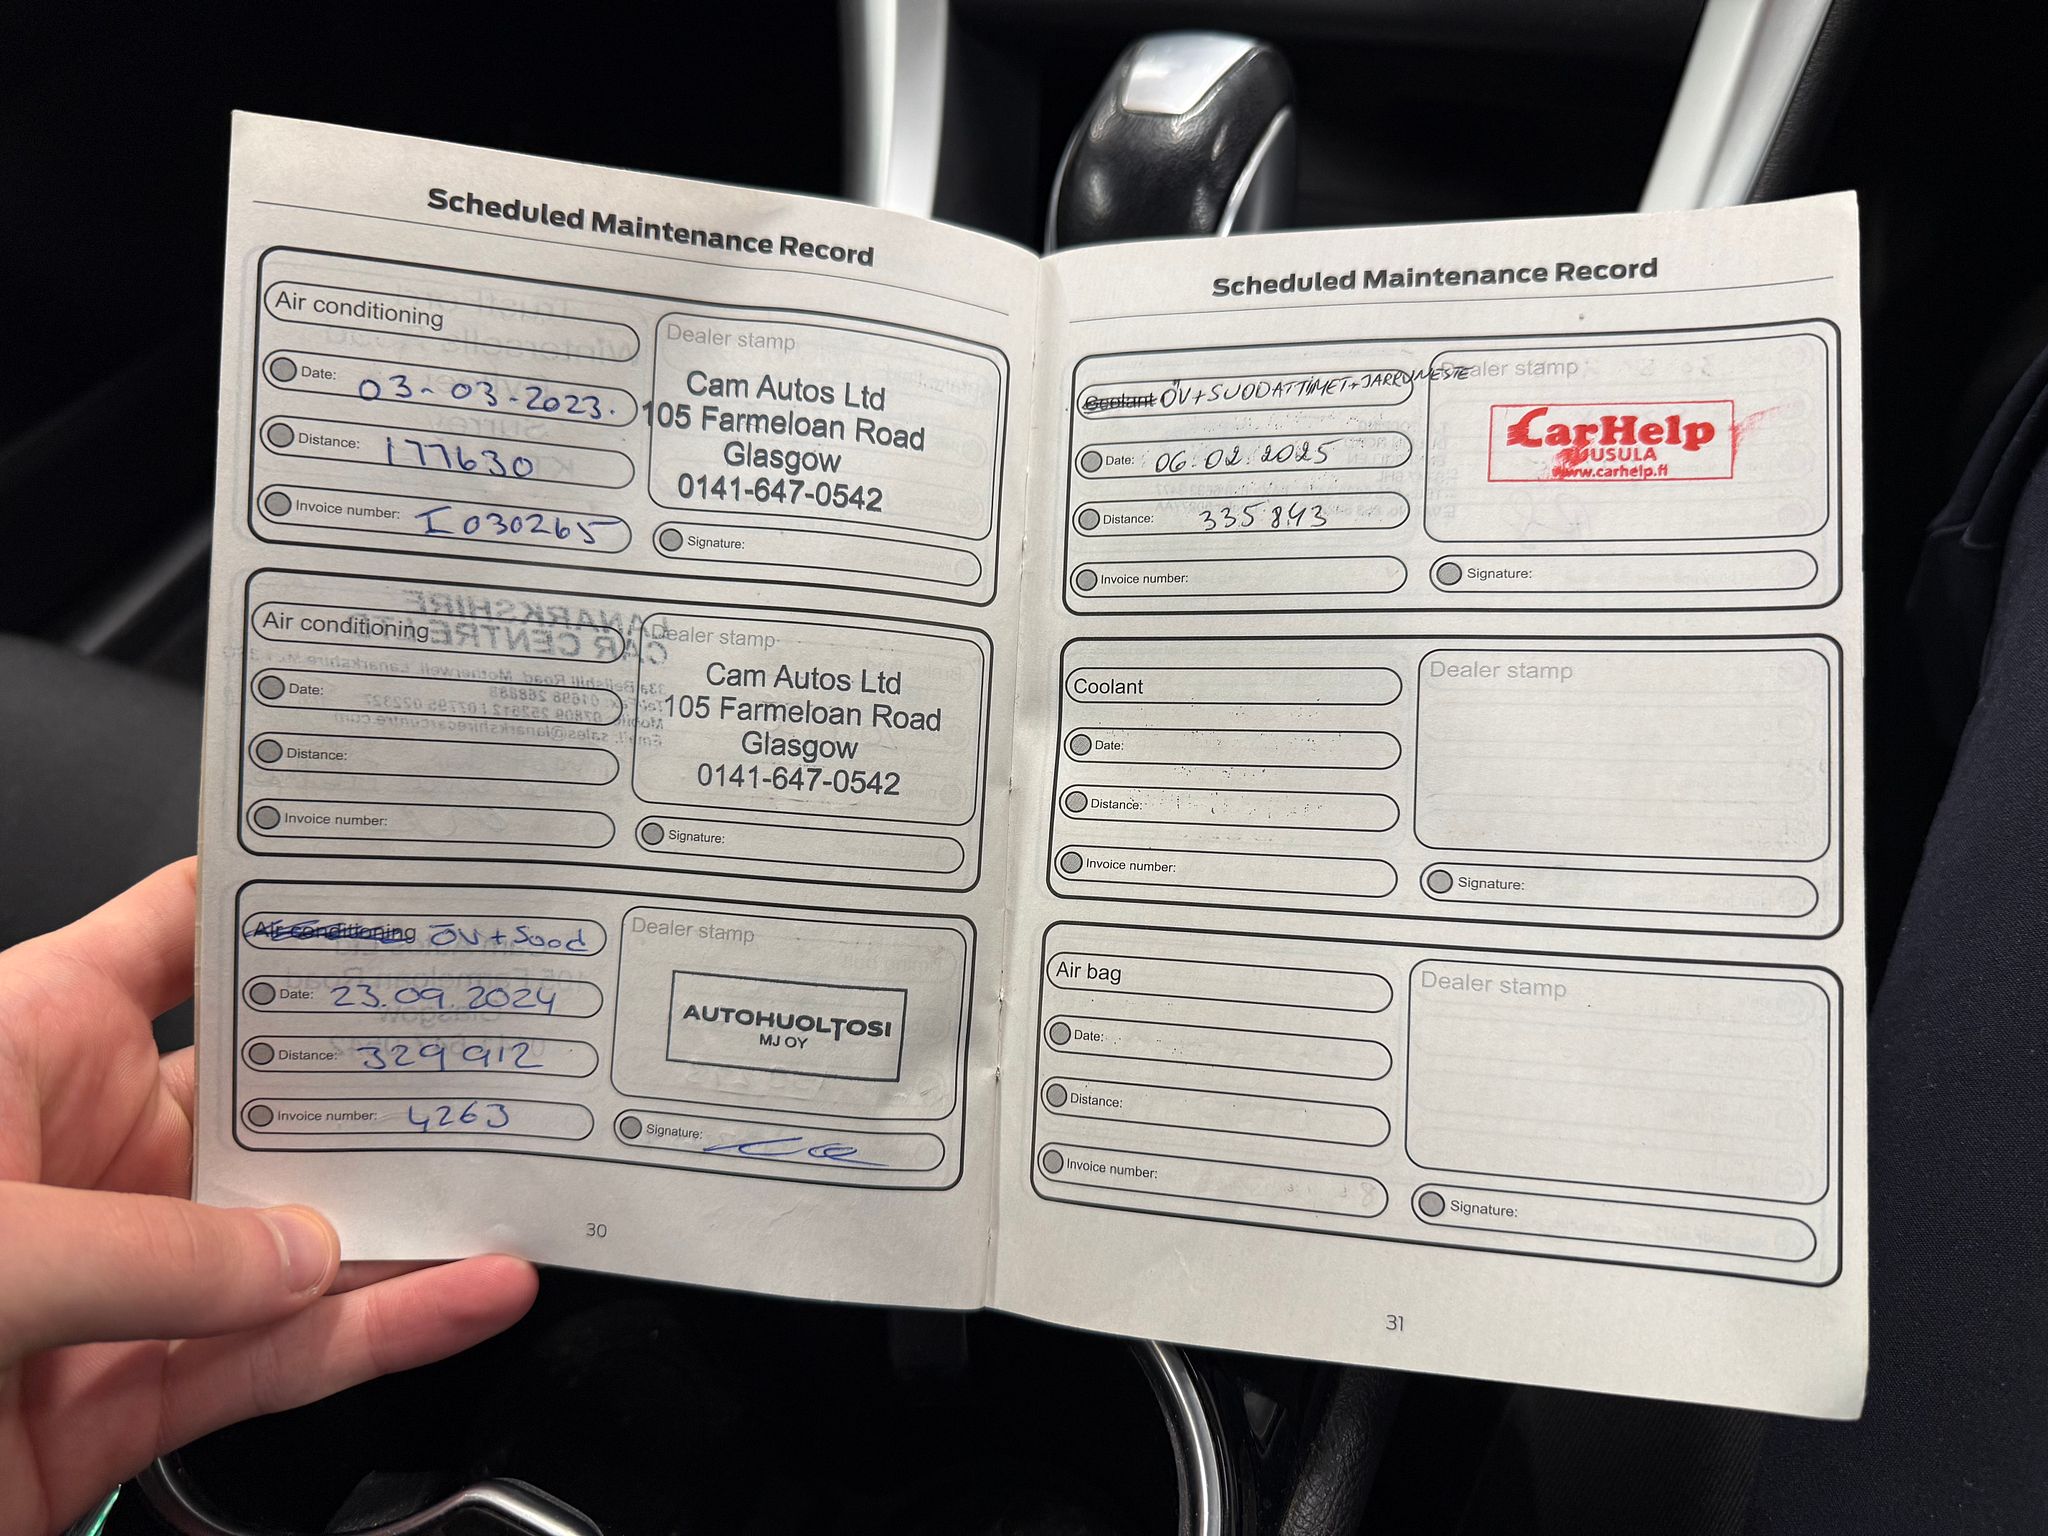 Scheduled Maintenance Record
Air conditioning
Date: 03-03-2023.
Distance: 177630
Invoice number: I030265
Dealer stamp
Cam Autos Ltd
105 Farmeloan Road
Glasgow
0141-647-0542
Signature:
Air conditioning
Date:
Distance:
Invoice number:
Dealer stamp
Cam Autos Ltd
105 Farmeloan Road
Glasgow
0141-647-0542
Signature:
Air conditioning ÖV + Suod
Date: 23.09.2024
Distance: 329912
Invoice number: 4263
Dealer stamp
AUTOHUOLTOSI
MJ OY
Signature:
30
Scheduled Maintenance Record
Coolant ÖV+SUODATTIMET+JARRUNESTE
Date: 06.02.2025
Distance: 335843
Invoice number:
Dealer stamp
CarHelp
TUUSULA
www.carhelp.fi
Signature:
Coolant
Date:
Distance:
Invoice number:
Dealer stamp
Signature:
Air bag
Date:
Distance:
Invoice number:
Dealer stamp
Signature:
31